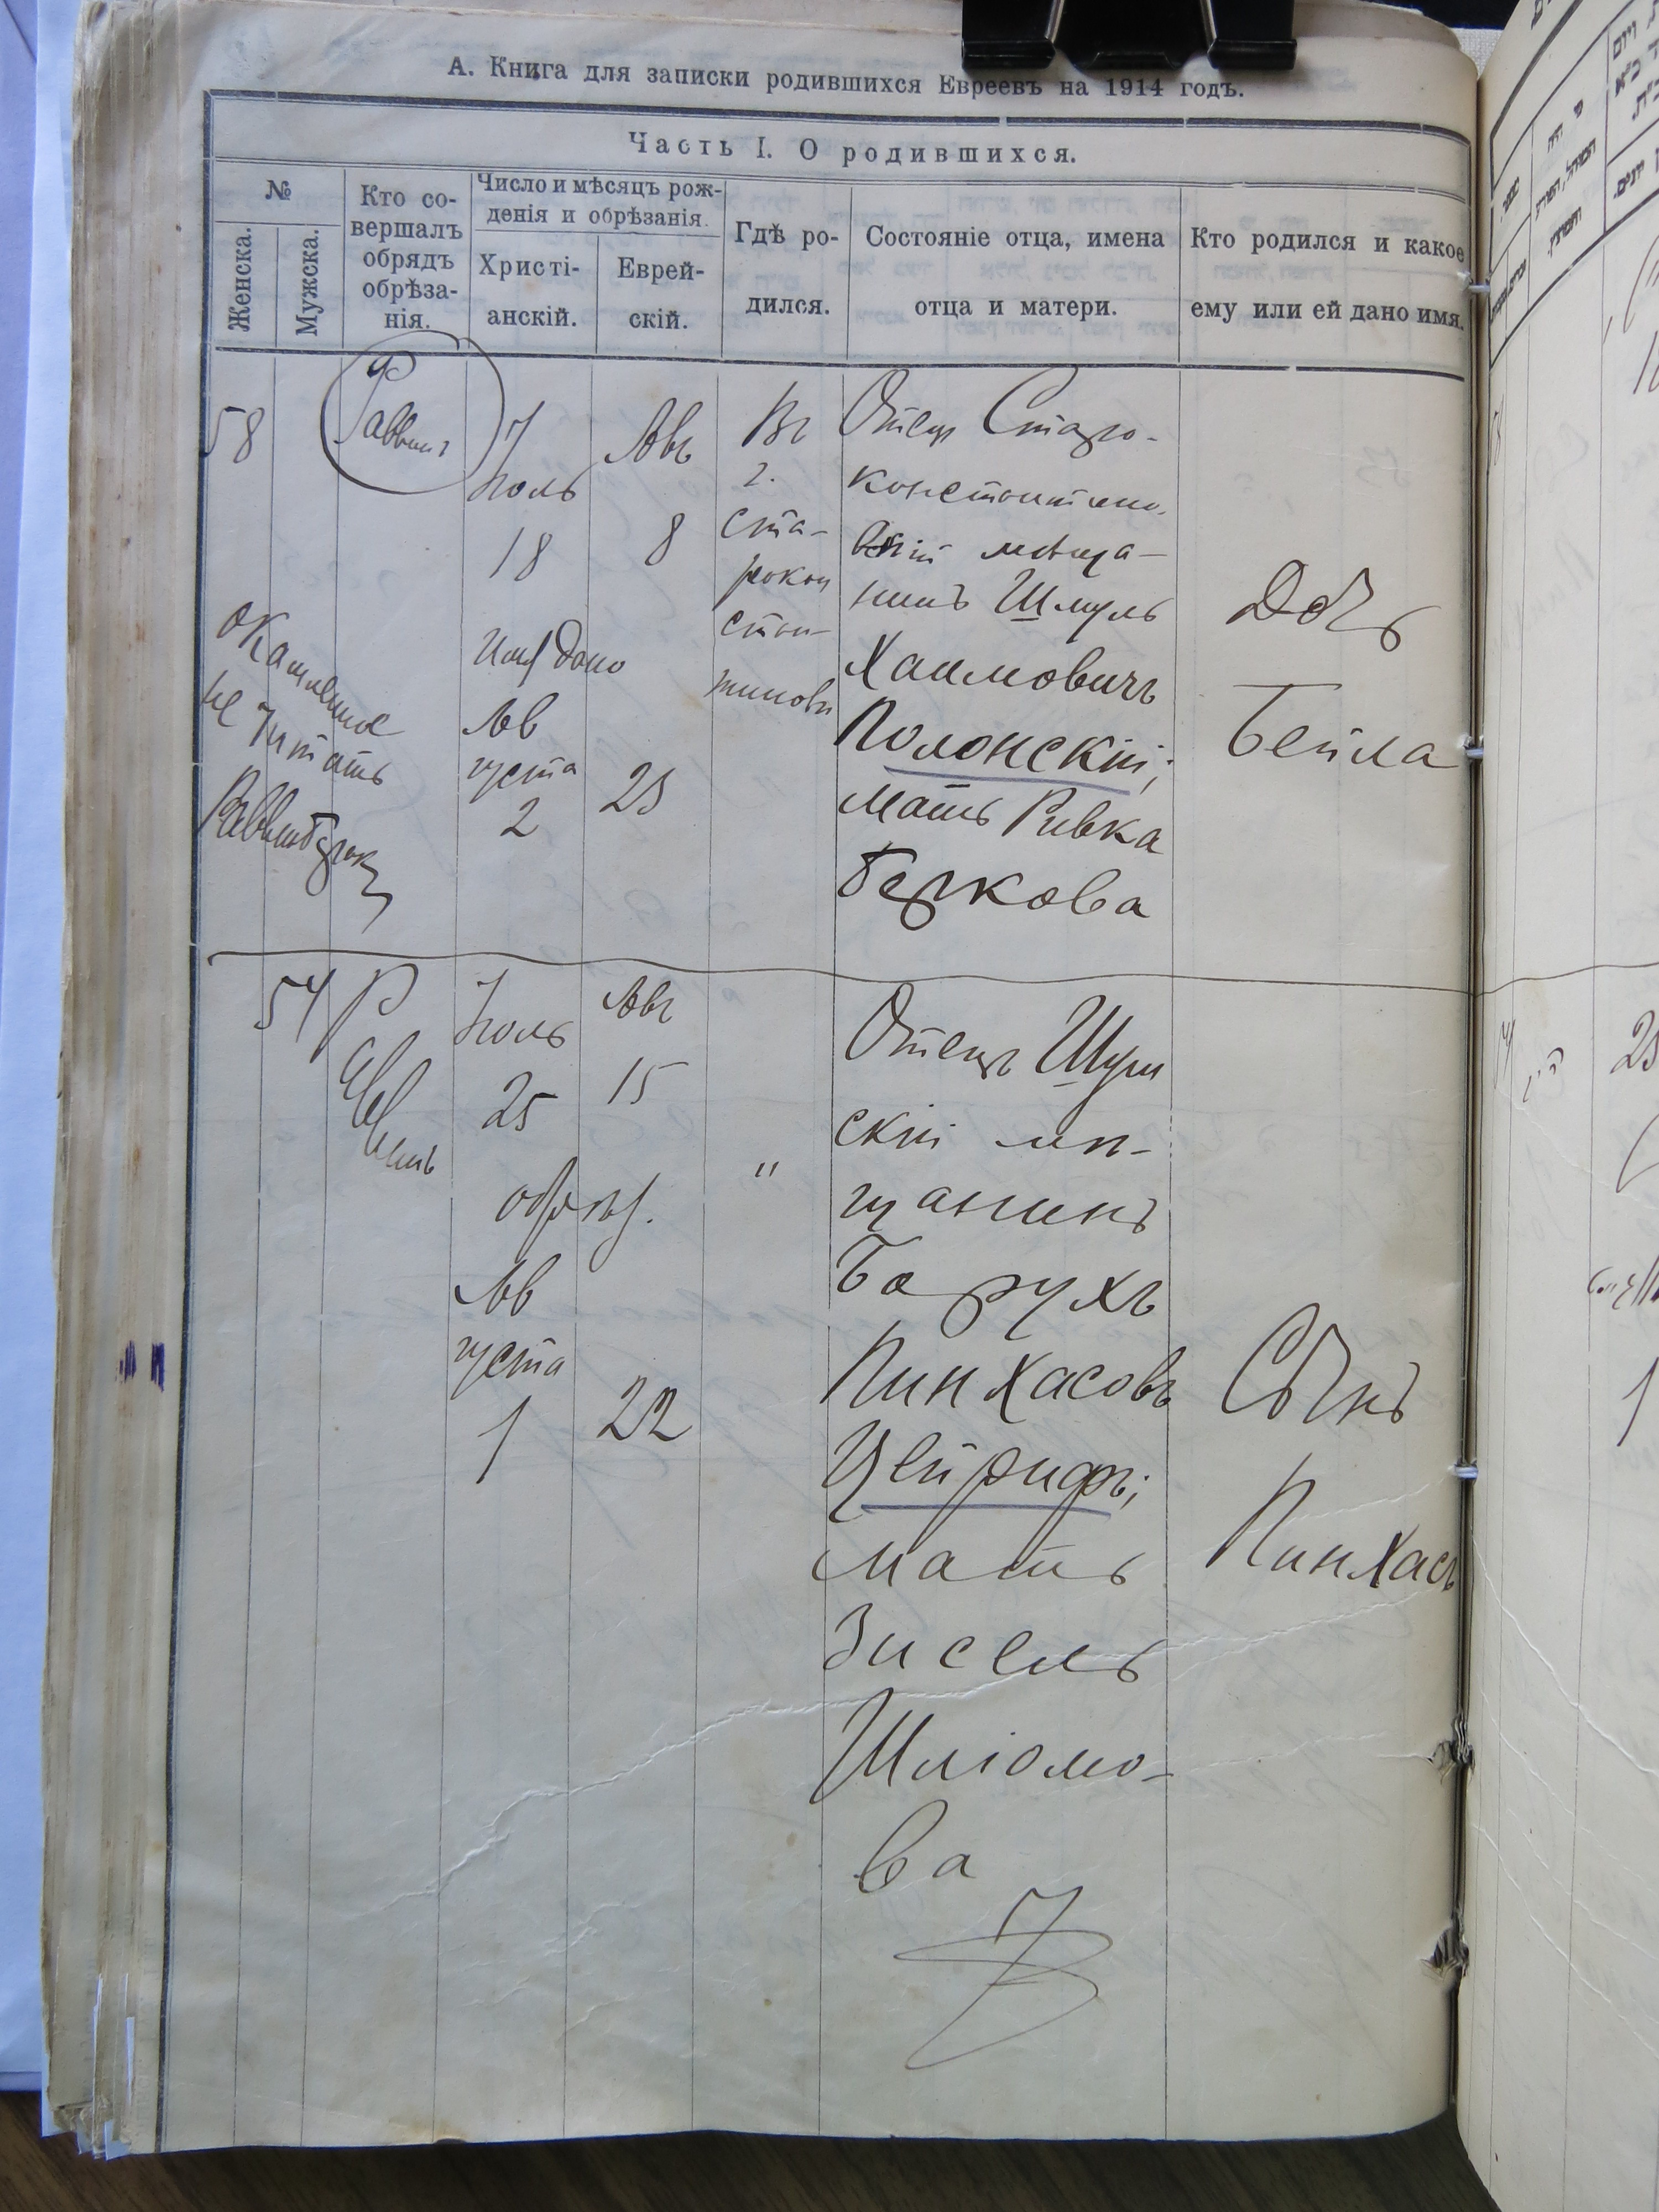 А. Книга для записки родившихся Евреевъ на 1914 годъ.
Часть I. О родившихся.
№
Женска.
Мужска.
Кто со-
вершалъ
обрядъ
обрѣза-
нія.
Число и мѣсяцъ рож-
денія и обрѣзанія.
Христі-
анскій.
Еврей-
скій.
Гдѣ ро-
дился.
Состояніе отца, имена
отца и матери.
Кто родился и какое
ему или ей дано имя.
58
Раввинъ
Іюль
18
Имя дано
Ав
густа
2
Авъ
8
25
Въ
г.
Ста-
рокон
стан-
тиновѣ
Отецъ Старо-
константино
вскій мѣща-
нинъ Шмуль
Хаимовичъ
Полонскій;
мать Ривка
Беркова
Дочь
Бейла
не читать
54
Р
Іюль
25
обрѣз.
Ав
густа
1
Авъ
15
22
"
Отецъ
скій мѣ-
щанинъ
Барухъ
Пинхасовъ
Цейрифъ;
мать
Зисель
Шліомо-
ва
Сынъ
Пинхасъ